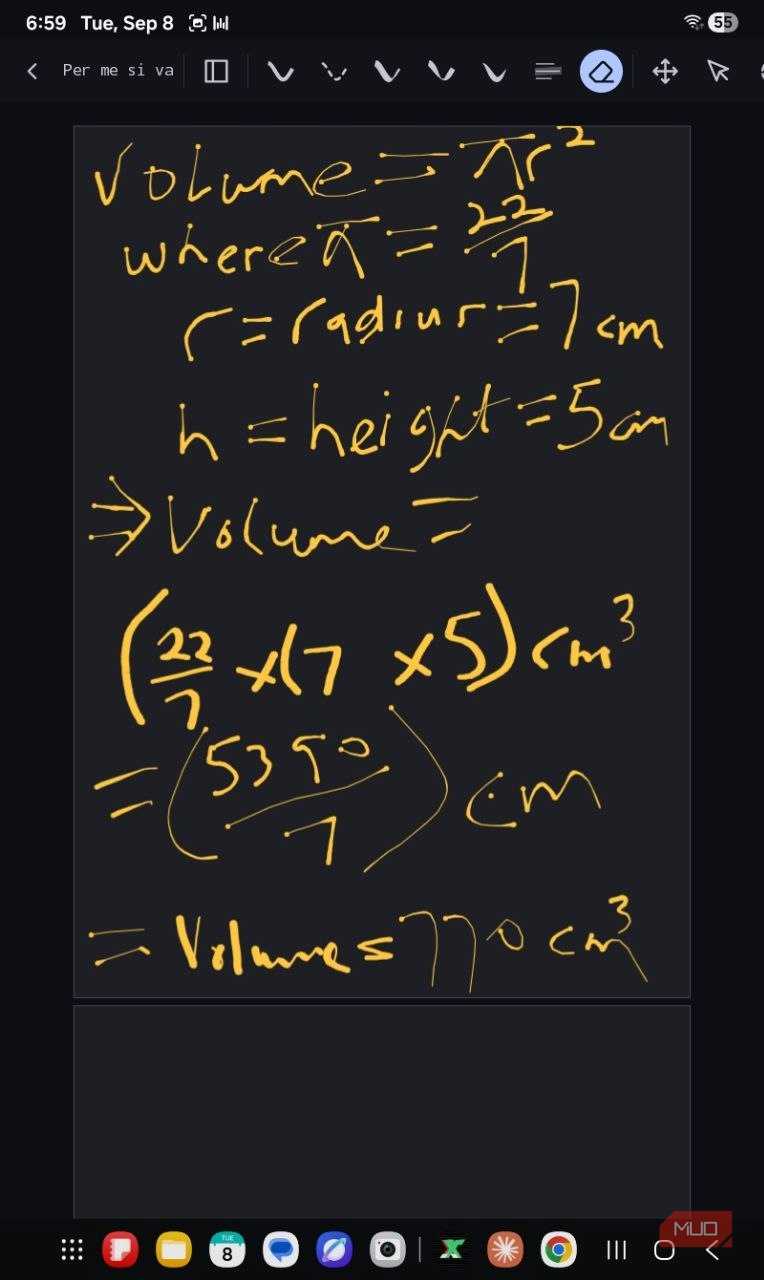 6:59 Tue, Sep 8 55
Per me si va
Volume = πr²
where π = 22/7
r = radius = 7 cm
h = height = 5 cm
⇒ Volume =
(22/7 × (7 × 5) cm³
= (5390/7) cm
= Volume = 770 cm³
TUE
8
MUO